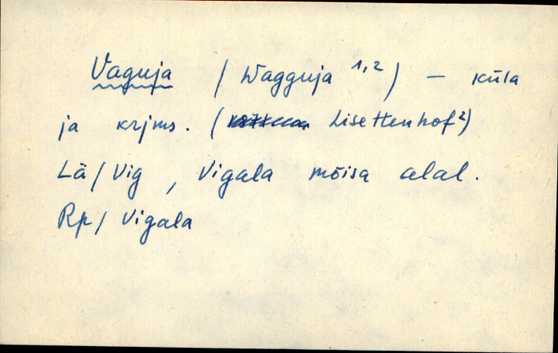 Vaguja / Wagguja 1,2) – küla
ja krjms. (Lisettenhof 2)
Lä / Vig, Vigala mõisa alal.
Rp / Vigala